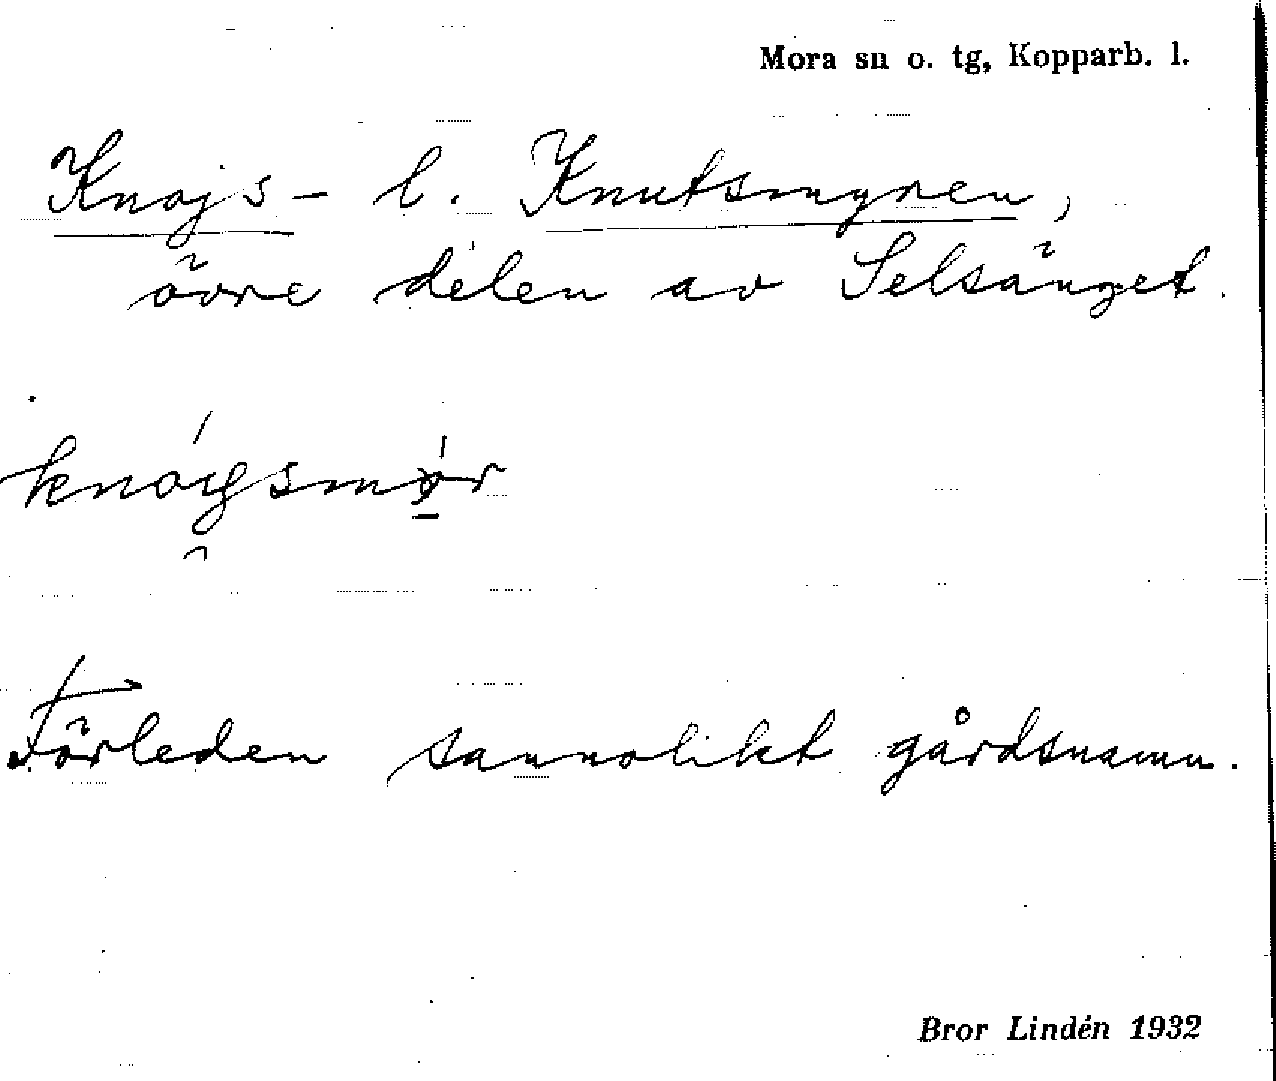 Mora sn o. tg, Kopparb. l.
Knojs- l. Knutsmyren,
övre delen av Selsänget.
Förleden sannolikt gårdsnamn.
Bror Lindén 1932